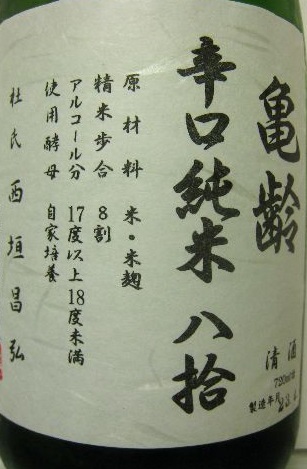 亀齢
辛口純米 八拾
清酒
720ml詰
製造年月
原材料 米・米麹
精米歩合 8割
アルコール分 17度以上18度未満
使用酵母 自家培養
杜氏 西垣昌弘